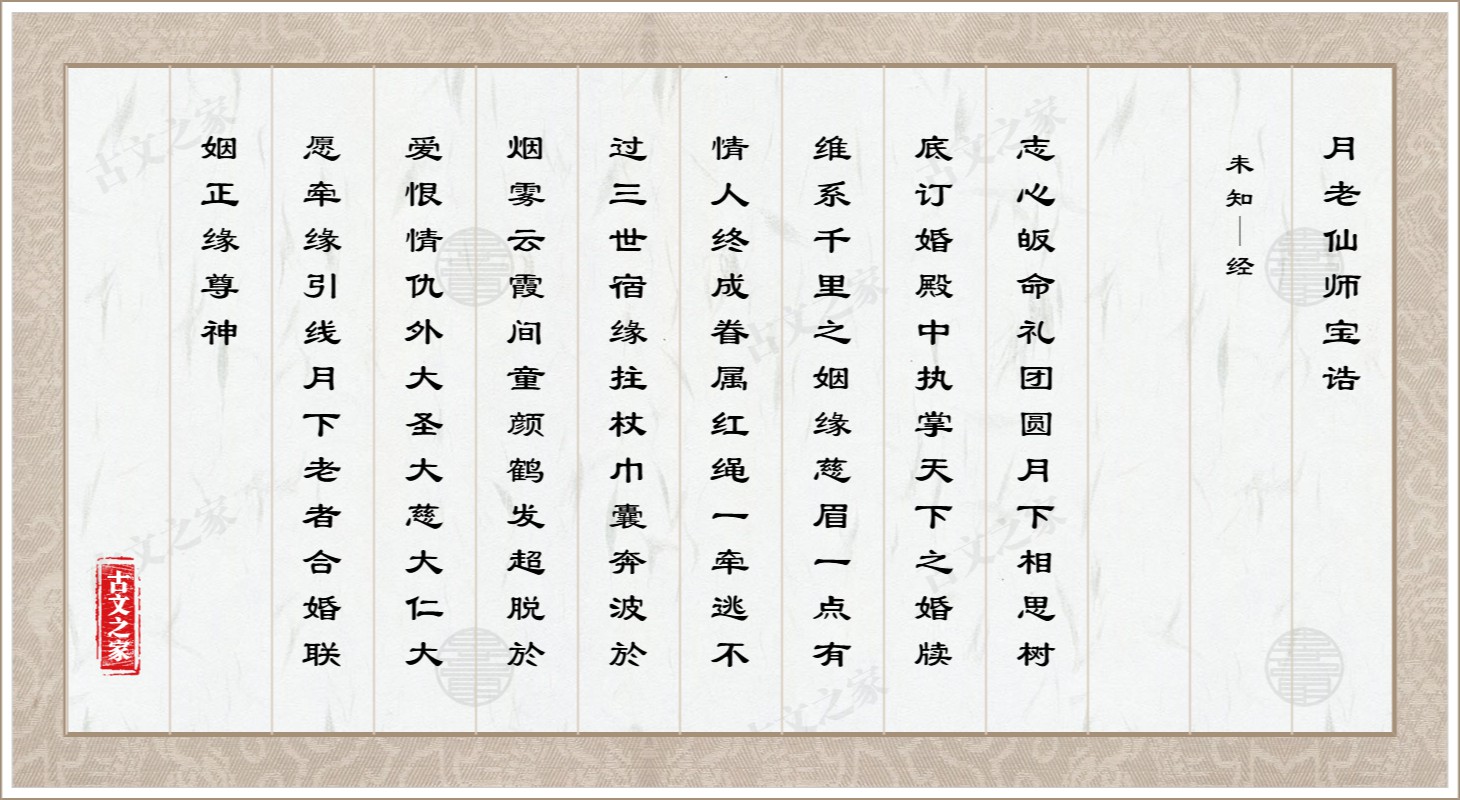 月老仙师宝诰
未知—经
志心皈命礼团圆月下相思树
底订婚殿中执掌天下之婚牍
维系千里之姻缘慈眉一点有
情人终成眷属红绳一牵逃不
过三世宿缘拄杖巾囊奔波於
烟雾云霞间童颜鹤发超脱於
爱恨情仇外大圣大慈大仁大
愿牵缘引线月下老者合婚联
姻正缘尊神
古文之家
古文之家
古文之家
古文之家
古文之家
古文之家
古文之家